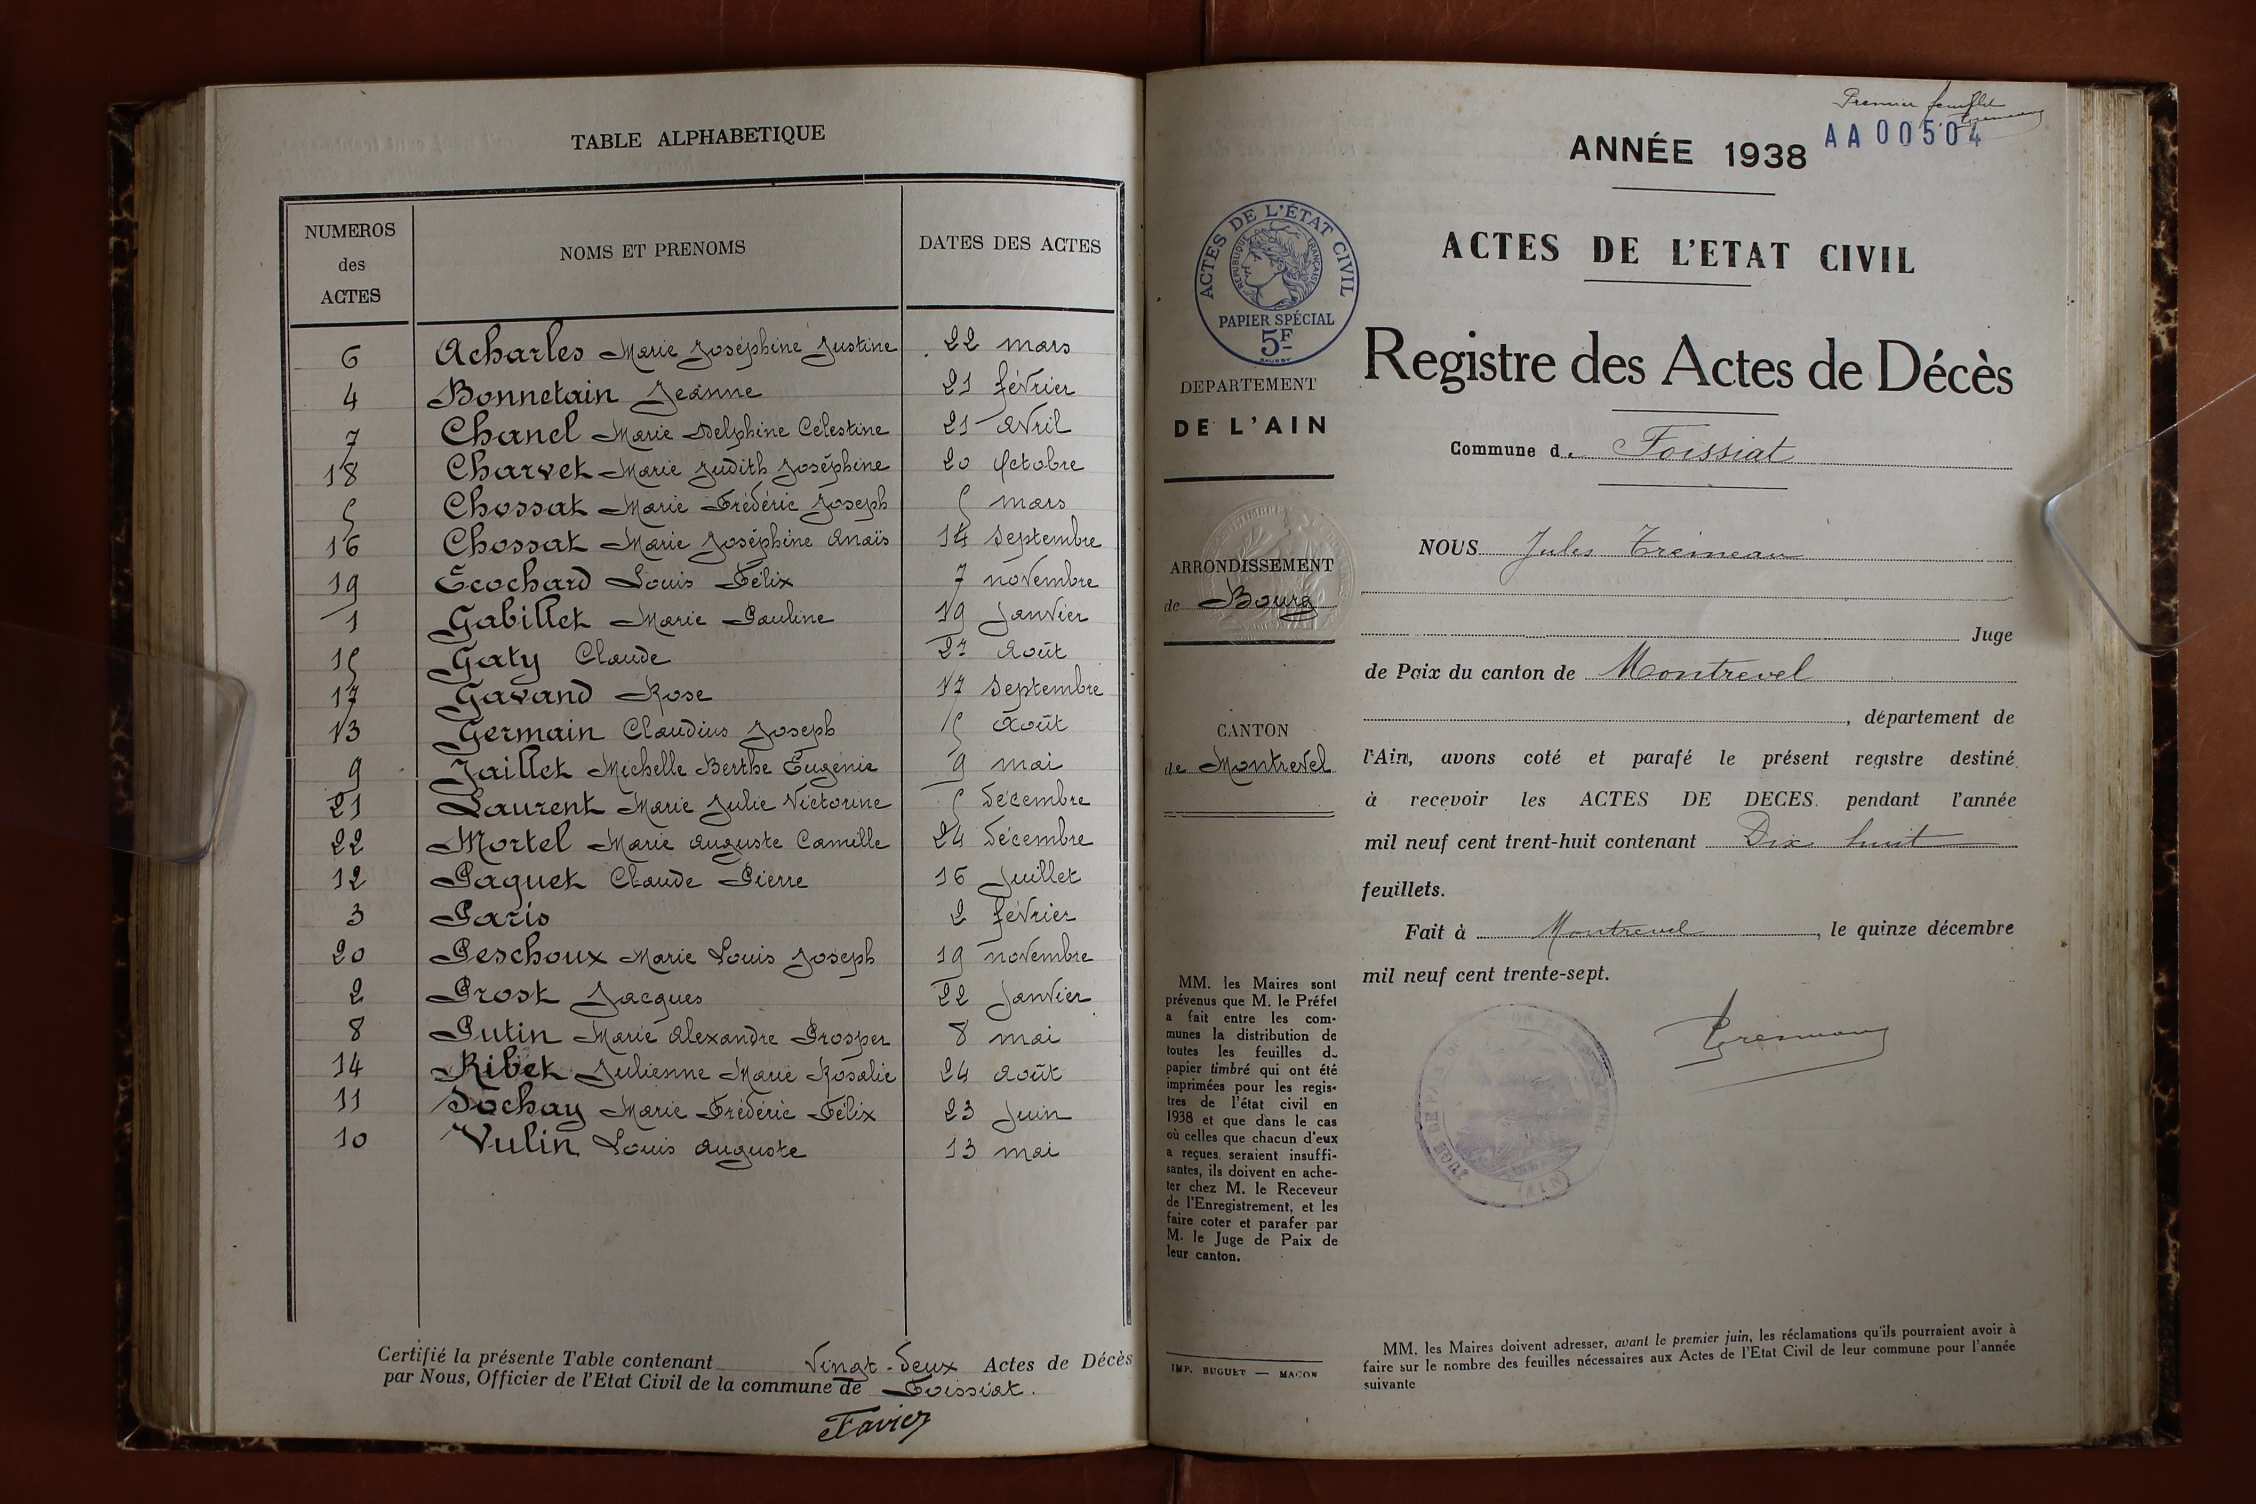 TABLE ALPHABETIQUE
NUMEROS
des
ACTES
NOMS ET PRENOMS
DATES DES ACTES
6 Acharles Marie Joséphine Justine 22 mars
4 Bonnetain Jeanne 21 février
7 Chanel Marie Delphine Celestine 21 Avril
18 Charvet Marie Judith Joséphine 20 Octobre
5 Chossat Marie Frédéric Joseph 5 mars
16 Chossat Marie Joséphine Anaïs 14 Septembre
19 Ecochard Louis Félix 7 novembre
1 Gabillet Marie Pauline 19 Janvier
15 Gaty Claude 27 Août
17 Gavand Rose 17 Septembre
13 Germain Claudius Joseph 15 Août
9 Jaillet Michelle Berthe Eugénie 9 mai
21 Laurent Marie Julie Victorine 5 décembre
22 Mortel Marie Auguste Camille 24 décembre
12 Paquet Claude Pierre 16 Juillet
3 Paris 2 février
20 Peschoux Marie Louis Joseph 19 novembre
2 Prost Jacques 22 Janvier
8 Putin Marie Alexandre Prosper 8 mai
14 Ribet Julienne Marie Rosalie 24 Août
11 Sochay Marie Frédéric Félix 23 Juin
10 Vulin Louis Auguste 13 mai
Certifié la présente Table contenant Vingt-deux Actes de Décès
par Nous, Officier de l'Etat Civil de la commune de Foissiat.
Favier
Premier feuillet
AA00504
ANNÉE 1938
ACTES DE L'ETAT CIVIL
Registre des Actes de Décès
Commune de Foissiat
ACTES DE L'ÉTAT CIVIL
RÉPUBLIQUE FRANÇAISE
PAPIER SPÉCIAL
5F
DEPARTEMENT
DE L'AIN
ARRONDISSEMENT
de Bourg
CANTON
de Montrevel
MM. les Maires sont
prévenus que M. le Préfet
a fait entre les com-
munes la distribution de
toutes les feuilles de
papier timbré qui ont été
imprimées pour les regis-
tres de l'état civil en
1938 et que dans le cas
où celles que chacun d'eux
a reçues seraient insuffi-
santes, ils doivent en ache-
ter chez M. le Receveur
de l'Enregistrement, et les
faire coter et parafer par
M. le Juge de Paix de
leur canton.
IMP. BUGUET — MACON
NOUS Jules
Juge
de Paix du canton de Montrevel
, département de
l'Ain, avons coté et parafé le présent registre destiné
à recevoir les ACTES DE DECES pendant l'année
mil neuf cent trent-huit contenant Dix huit
feuillets.
Fait à Montrevel, le quinze décembre
mil neuf cent trente-sept.
MM. les Maires doivent adresser, avant le premier juin, les réclamations qu'ils pourraient avoir à
faire sur le nombre des feuilles nécessaires aux Actes de l'Etat Civil de leur commune pour l'année
suivante